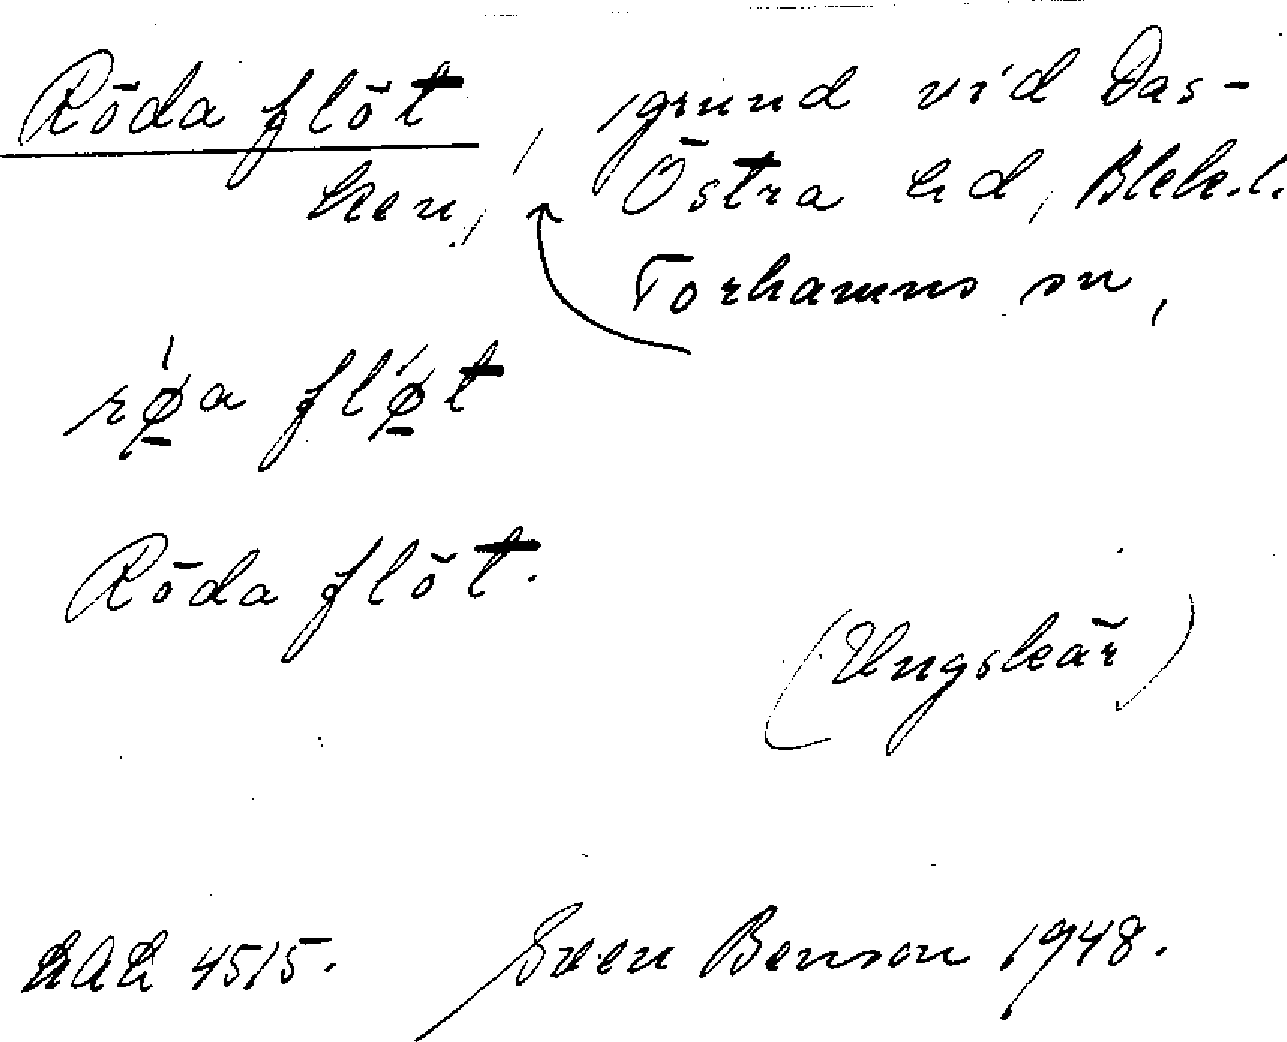 Röda flöt, grund vid Das-
ken, Östra hd, Blek.l.
Torhamns sn,
rǿ̱a flǿ̱t
Röda flöt.
(Ungskär)
LAL 4515. Sven Benson 1948.